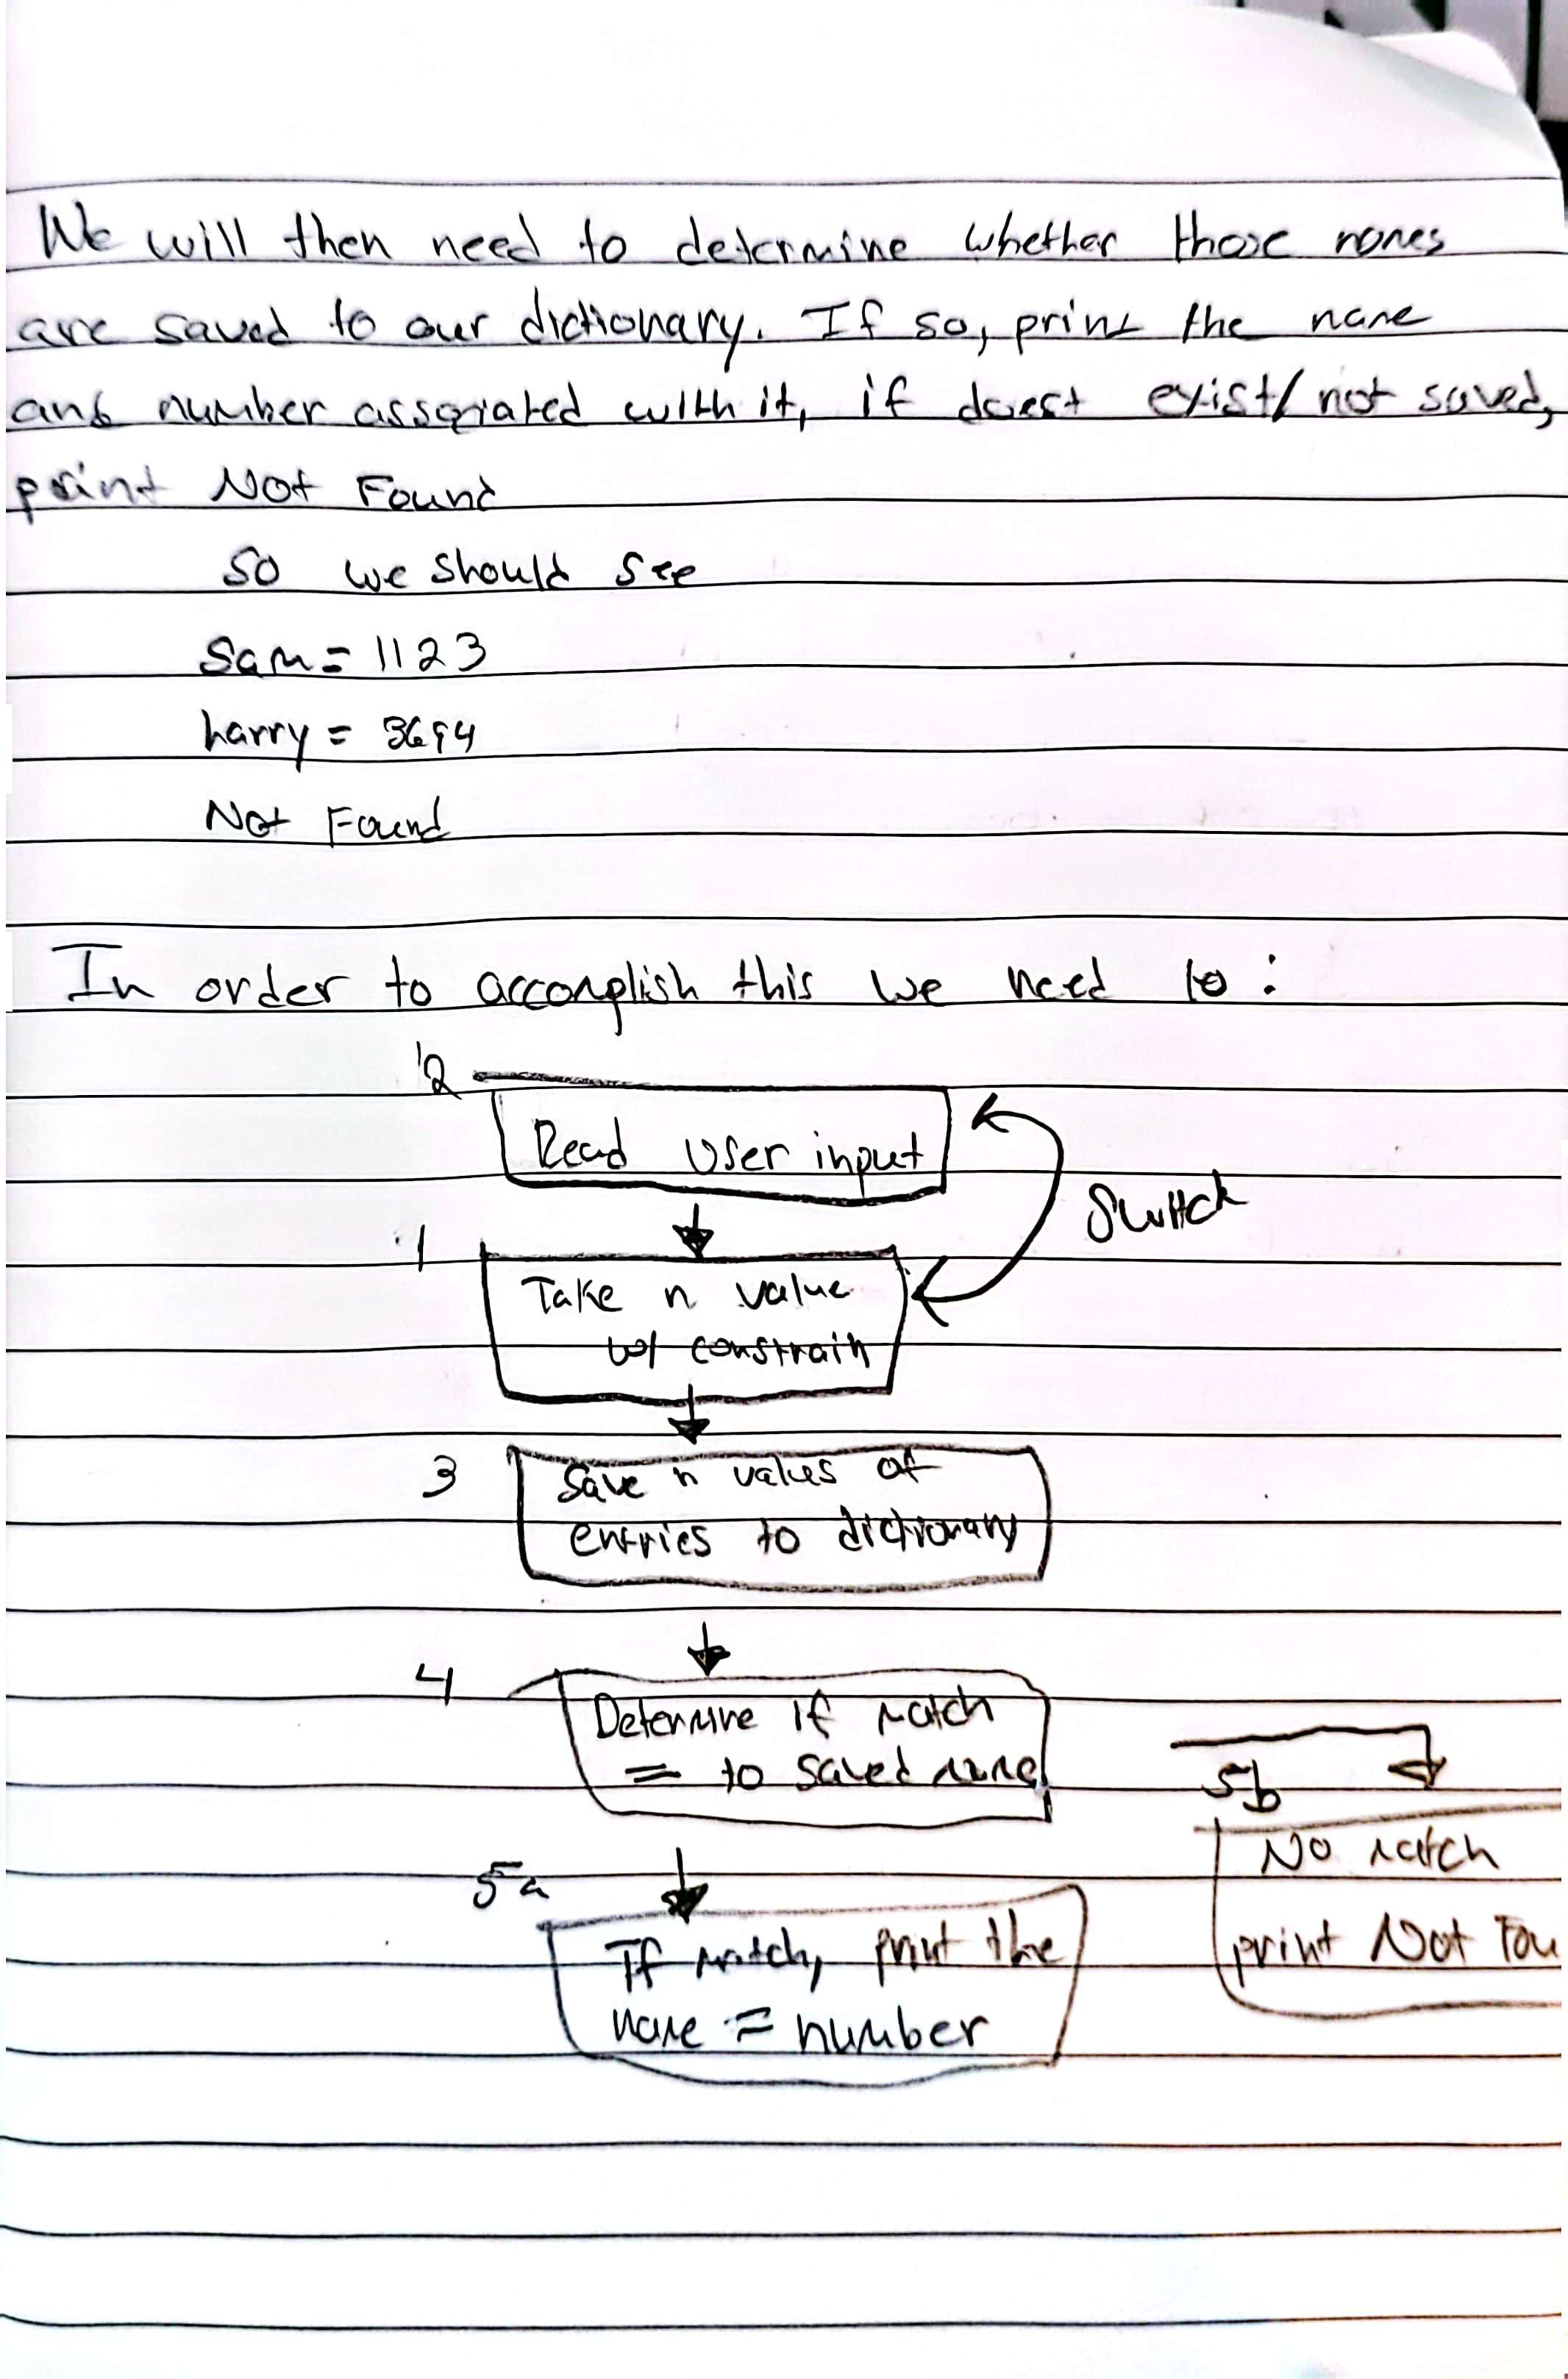 We will then need to determine whether those names
are saved to our dictionary. If so, print the name
and number associated with it, if doest exist/ not saved,
print Not Found
So we should see
Sam = 1123
harry = 3694
Not Found
In order to accomplish this we need to :
2
Read User input
Switch
1
Take n value
w/ constrain
3
Save n values of
entries to dictionary
4
Determine if match
= to saved name
5b
No match
print Not Fou
5a
If match, print the
name = number